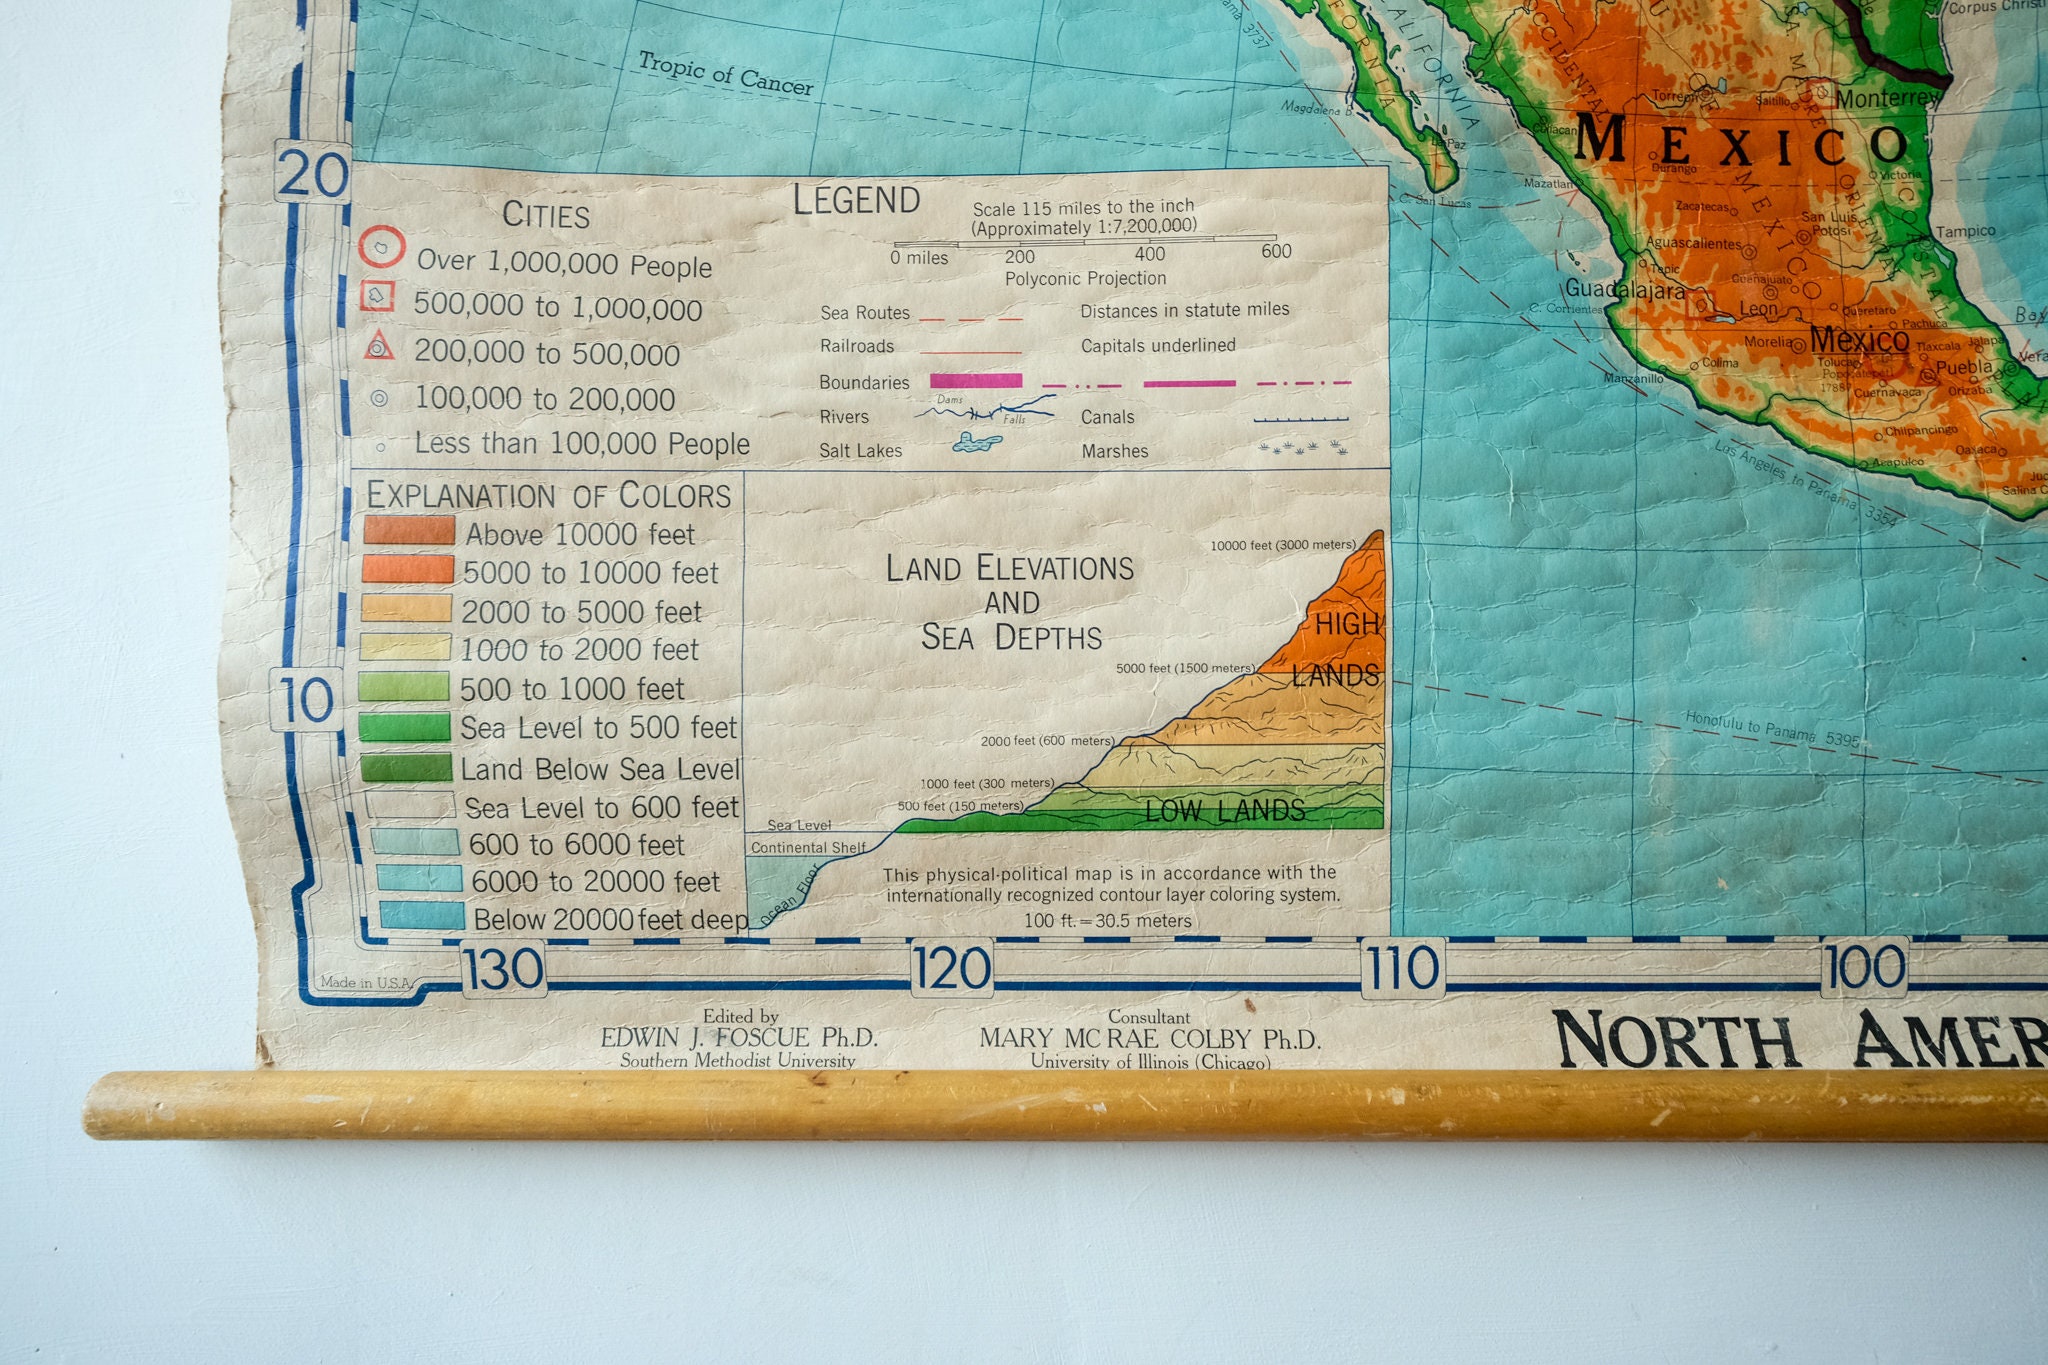 Tropic of Cancer
20
10
LEGEND
CITIES
Over 1,000,000 People
500,000 to 1,000,000
200,000 to 500,000
100,000 to 200,000
Less than 100,000 People
Scale 115 miles to the inch
(Approximately 1:7,200,000)
0 miles 200 400 600
Polyconic Projection
Sea Routes
Distances in statute miles
Railroads
Capitals underlined
Boundaries
Rivers
Dams
Falls
Canals
Salt Lakes
Marshes
EXPLANATION OF COLORS
Above 10000 feet
5000 to 10000 feet
2000 to 5000 feet
1000 to 2000 feet
500 to 1000 feet
Sea Level to 500 feet
Land Below Sea Level
Sea Level to 600 feet
600 to 6000 feet
6000 to 20000 feet
Below 20000 feet deep
LAND ELEVATIONS
AND
SEA DEPTHS
10000 feet (3000 meters)
HIGH
5000 feet (1500 meters)
LANDS
2000 feet (600 meters)
1000 feet (300 meters)
500 feet (150 meters)
LOW LANDS
Sea Level
Continental Shelf
Ocean Floor
This physical-political map is in accordance with the
internationally recognized contour layer coloring system.
100 ft. = 30.5 meters
130 120 110 100
Made in U.S.A.
Edited by
EDWIN J. FOSCUE Ph.D.
Southern Methodist University
Consultant
MARY MC RAE COLBY Ph.D.
University of Illinois (Chicago)
NORTH AMER
3737
Magdalena B.
CALIFORNIA
OCCIDENTAL
Corpus Christi
Torreon
Saltillo
Monterrey
Culiacan
La Paz
MEXICO
Durango
Victoria
Mazatlan
C. San Lucas
Zacatecas
San Luis
Potosi
Tampico
Aguascalientes
Tepic
Guanajuato
Guadalajara
Leon
Queretaro
C. Corrientes
Pachuca
Morelia
Mexico
Tlaxcala
Jalapa
Toluca
Popocatepetl
17887
Puebla
Vera
Manzanillo
Colima
Cuernavaca
Orizaba
Chilpancingo
Oaxaca
Acapulco
Salina
Los Angeles to Panama 3354
Honolulu to Panama 5395